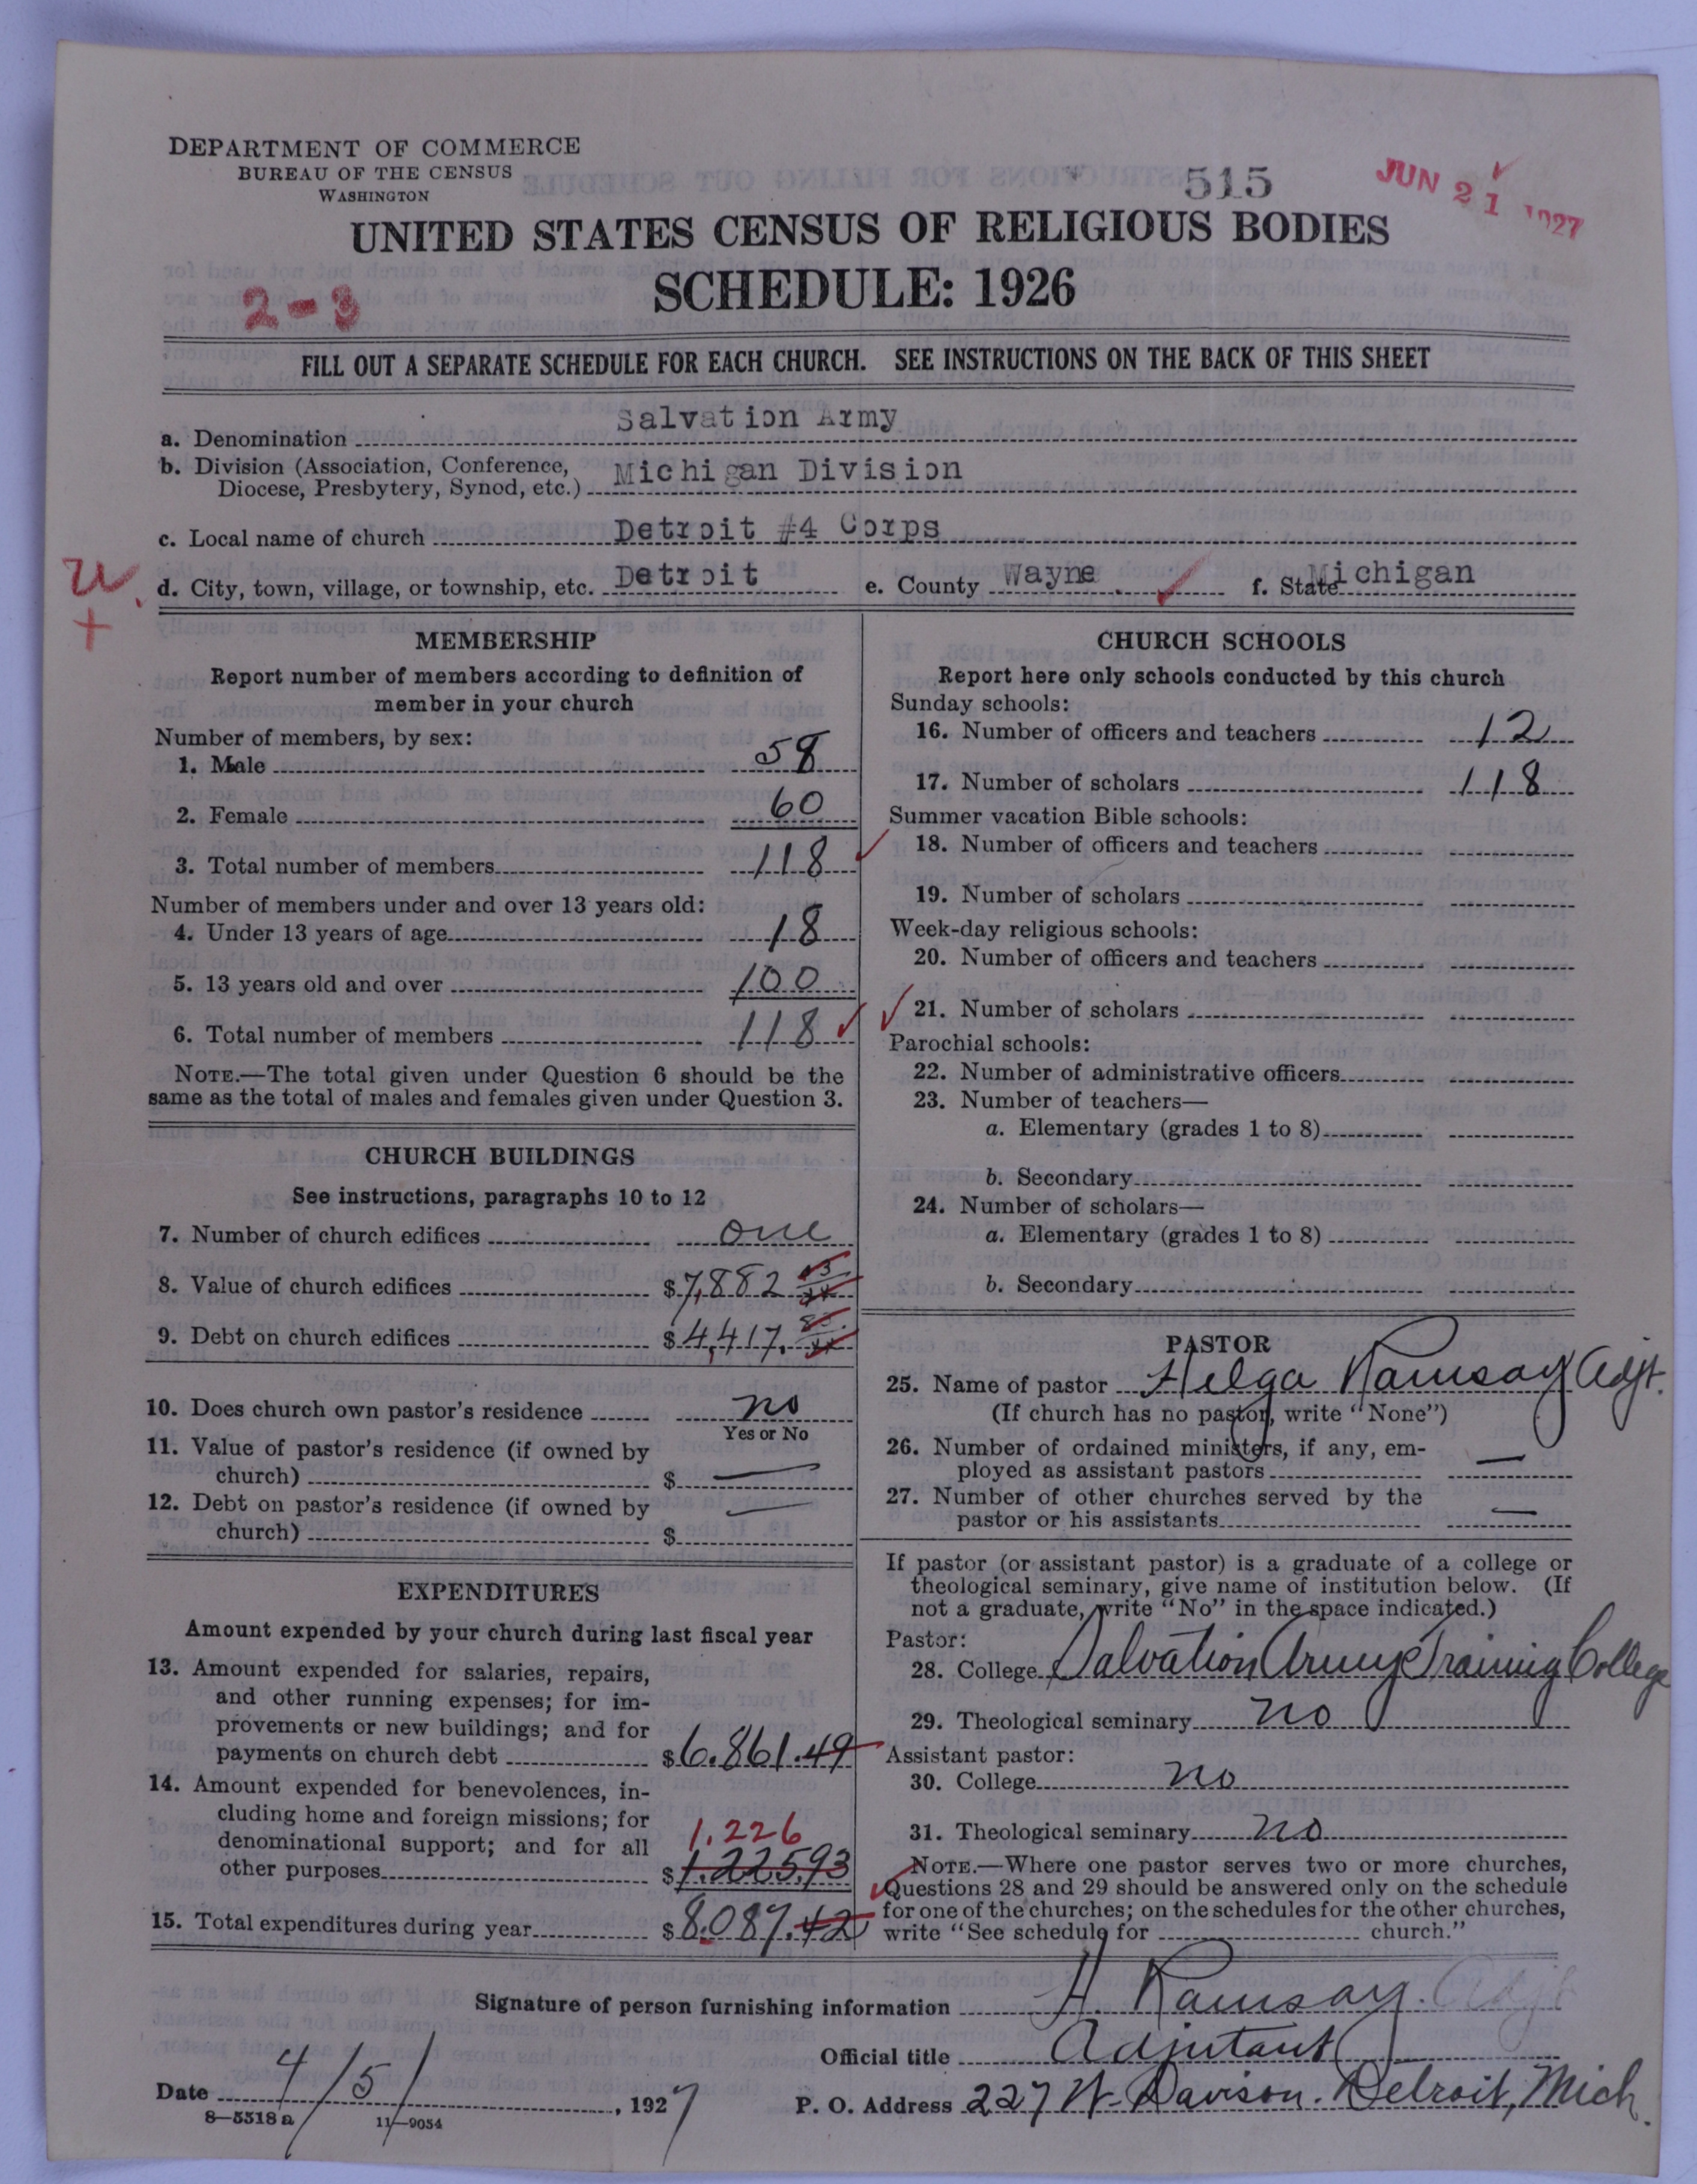 DEPARTMENT OF COMMERCE
BUREAU OF THE CENSUS
WASHINGTON
515
JUN 21 1927
UNITED STATES CENSUS OF RELIGIOUS BODIES
SCHEDULE: 1926
2-3
FILL OUT A SEPARATE SCHEDULE FOR EACH CHURCH. SEE INSTRUCTIONS ON THE BACK OF THIS SHEET
a. Denomination Salvation Army
b. Division (Association, Conference,
Diocese, Presbytery, Synod, etc.) Michigan Division
c. Local name of church Detroit #4 Corps
d. City, town, village, or township, etc. Detroit e. County Wayne f. State Michigan
MEMBERSHIP
Report number of members according to definition of
member in your church
Number of members, by sex:
1. Male 58
2. Female 60
3. Total number of members 118
Number of members under and over 13 years old:
4. Under 13 years of age 18
5. 13 years old and over 100
6. Total number of members 118
NOTE.—The total given under Question 6 should be the
same as the total of males and females given under Question 3.
CHURCH BUILDINGS
See instructions, paragraphs 10 to 12
7. Number of church edifices one
8. Value of church edifices $7,882
9. Debt on church edifices $4,417.
10. Does church own pastor's residence no
Yes or No
11. Value of pastor's residence (if owned by
church) $ —
12. Debt on pastor's residence (if owned by
church) $ —
EXPENDITURES
Amount expended by your church during last fiscal year
13. Amount expended for salaries, repairs,
and other running expenses; for im-
provements or new buildings; and for
payments on church debt $6.861.49
14. Amount expended for benevolences, in-
cluding home and foreign missions; for
denominational support; and for all
1.226
other purposes $1.225.93
15. Total expenditures during year $8.087.42
CHURCH SCHOOLS
Report here only schools conducted by this church
Sunday schools:
16. Number of officers and teachers 12
17. Number of scholars 118
Summer vacation Bible schools:
18. Number of officers and teachers
19. Number of scholars
Week-day religious schools:
20. Number of officers and teachers
21. Number of scholars
Parochial schools:
22. Number of administrative officers
23. Number of teachers—
a. Elementary (grades 1 to 8)
b. Secondary
24. Number of scholars—
a. Elementary (grades 1 to 8)
b. Secondary
PASTOR
25. Name of pastor Helga Ramsay Adjt.
(If church has no pastor, write "None")
26. Number of ordained ministers, if any, em-
ployed as assistant pastors —
27. Number of other churches served by the
pastor or his assistants —
If pastor (or assistant pastor) is a graduate of a college or
theological seminary, give name of institution below. (If
not a graduate, write "No" in the space indicated.)
Pastor:
28. College Salvation Army Training College
29. Theological seminary no
Assistant pastor:
30. College no
31. Theological seminary no
NOTE.—Where one pastor serves two or more churches,
Questions 28 and 29 should be answered only on the schedule
for one of the churches; on the schedules for the other churches,
write "See schedule for church."
Signature of person furnishing information H. Ramsay. Adjt
Official title Adjutant
Date 4/5/, 1927 P. O. Address 227 W. Davison. Detroit, Mich.
8-5518 a 11-9054